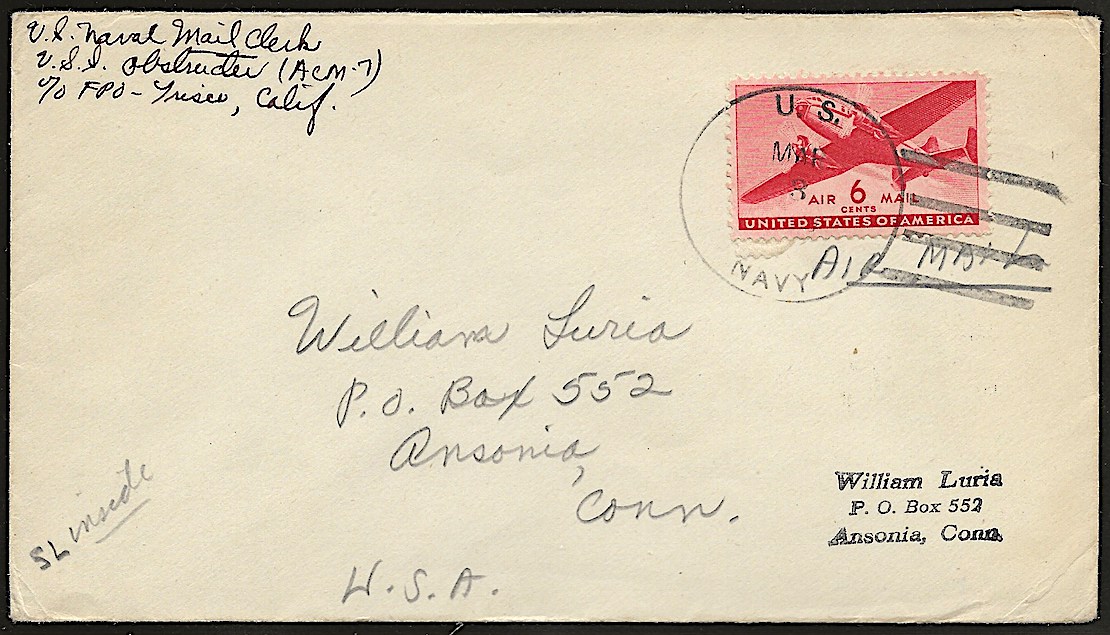 U.S. Naval Mail Clerk
U.S.S. Obstructer (ACM-7)
c/o FPO - Frisco, Calif.
U. S.
NAVY
AIR 6 MAIL
CENTS
UNITED STATES OF AMERICA
Air Mail
William Luria
P.O. Box 552
Ansonia,
Conn.
U.S.A.
SL inside
William Luria
P. O. Box 552
Ansonia, Conn.